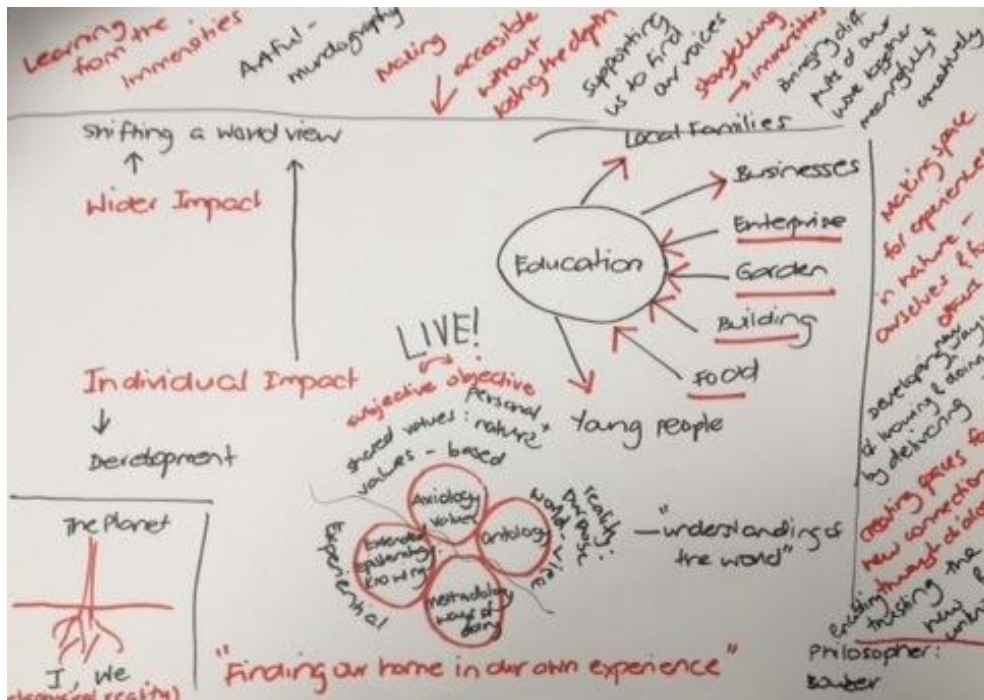 Learning
from the
Immensities
Artful-
mundography
Making
accessible
without
losing the depth
Supporting
us to find
our voices
storytelling
→ immensities
Bringing diff
parts of our
work together
meaningfully &
creatively
Shifting a world view
Wider Impact
Individual Impact
Development
Local Families
Businesses
Enterprise
Education
Garden
Building
Food
Young people
LIVE!
subjective objective
personal
shared values: nature
values-based
Axiology
values
Ontology
Extended
Epistemology
knowing
Methodology
ways of
doing
Experiential
reality:
purpose
world-view
"understanding of
the world"
The Planet
I, We
reality)
"Finding our home in our own experience"
Making space
for experiences
in nature -
ourselves & for
others
Developing new
ways
of knowing & doing
by delivering
creating spaces for
new connection
through
trusting the
new
Philosopher: